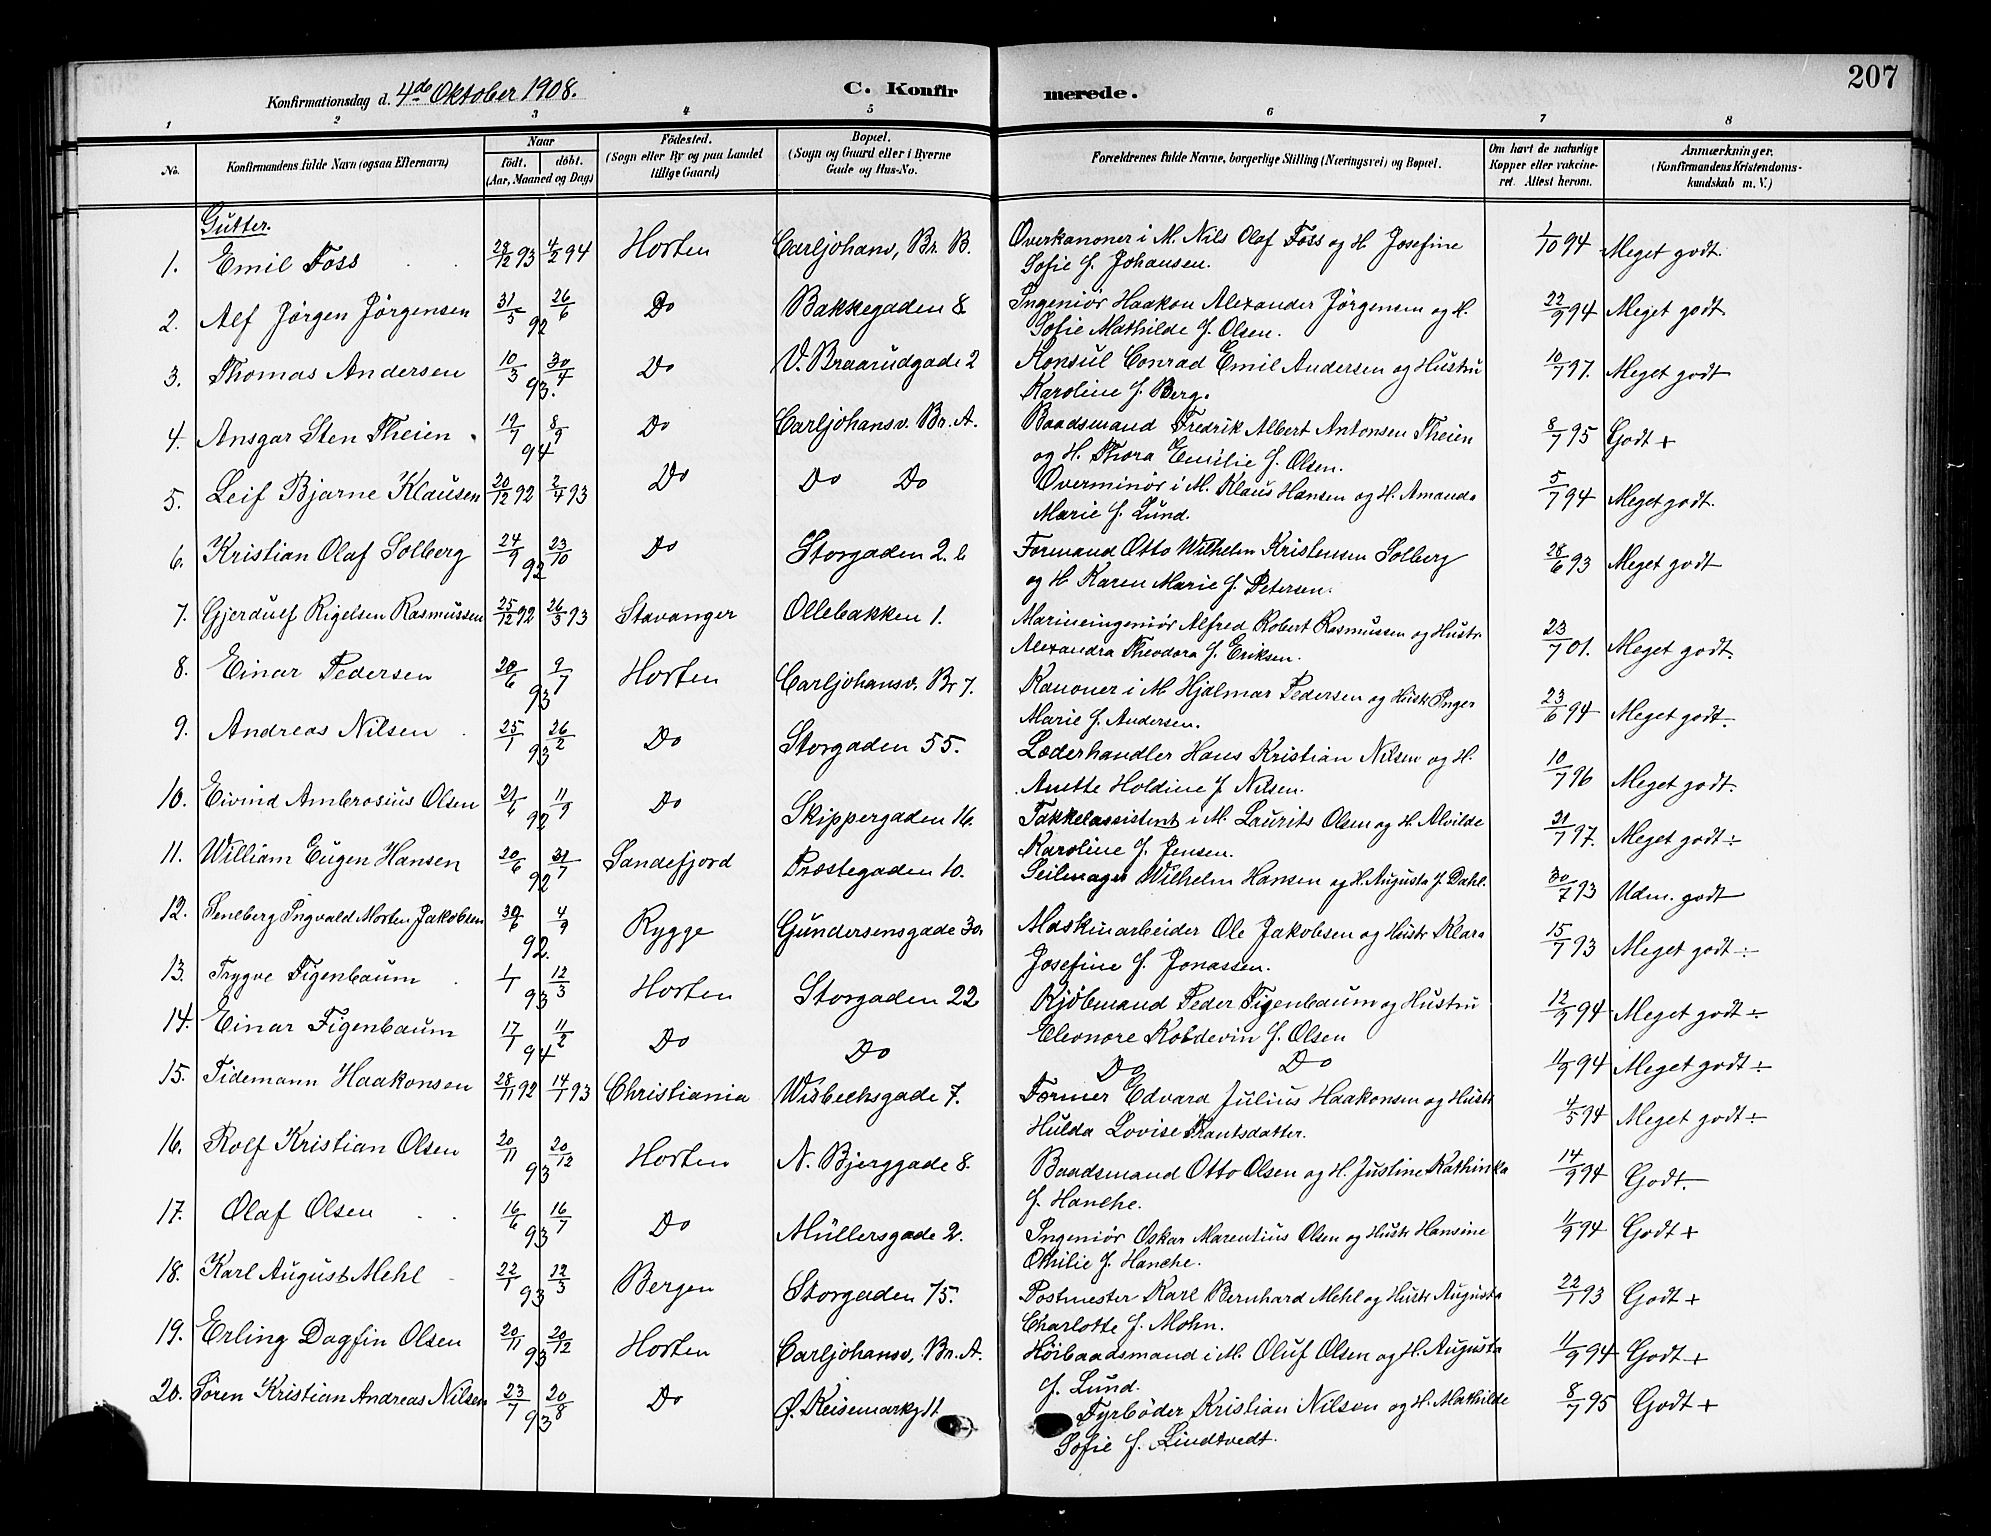 207
Konfirmationsdag d. 4de Oktober 1908. C. Konfirmerede.
1 2 3 4 5 6 7 8
No. Konfirmandens fulde Navn (ogsaa Efternavn) Naar født. døbt. (Aar, Maaned og Dag) Fødested. (Sogn eller By og paa Landet tillige Gaard) Bopæl. (Sogn og Gaard eller i Byerne Gade og Hus-No. Forældrenes fulde Navne, borgerlige Stilling (Næringsvei) og Bopæl. Om havt de naturlige Kopper eller vakcineret. Attest herom. Anmærkninger. (Konfirmandens Kristendomskundskab m. V.)
Gutter.
1. Emil Foss 28/12 93 4/2 94 Horten Carljohansv, Br. B. Overkanoner i M. Nils Olaf Foss og H. Josefine 1/10 94 Meget godt.
Sofie f. Johansen.
2. Alf Jörgen Jörgensen 31/5 26/6 92 Do Bakkegaden 8 Ingeniör Haakon Alexander Jörgensen og H. 22/9 94 Meget godt
Sofie Mathilde f. Olsen.
3. Thomas Andersen 10/3 30/4 93. Do V. Braarudgade 2 Konsul Conrad Emil Andersen og Hustru 10/7 97. Meget godt
Karoline f. Berg.
4. Ansgar Sten Theien 19/7 8/9 94 Do Carljohansv. Br. A. Baadsmand Fredrik Albert Antonsen Theien 8/7 95 Godt +
og H. Thora Emilie f. Olsen.
5. Leif Bjarne Klausen 20/12 92 2/4 93 Do Do Do Overminör i M. Klaus Hansen og H. Amanda 5/7 94 Meget godt.
Marie f. Lund.
6. Kristian Olaf Solberg 24/9 23/10 92 Do Storgaden 2. b Formand Otto Wilhelm Kristensen Solberg 28/6 93 Meget godt
og H. Karen Marie f. Petersen.
7. Gjerdulf Rigelsen Rasmussen 25/12 92 26/3 93 Stavanger Ollebakken 1. Marineingeniör Alfred Robert Rasmussen og Hustr 23/7 01. Meget godt.
Alexandra Theodora f. Eriksen.
8. Einar Pedersen 20/6 9/7 93 Horten Carljohansv. Br 7. Kanoner i M Hjalmar Pedersen og Hustr Inger 23/6 94 Meget godt.
Marie f. Andersen.
9. Andreas Nilsen 25/1 26/2 93 Do Storgaden 55. Læderhandler Hans Kristian Nilsen og H. 10/7 96 Meget godt.
Anette Holdine f. Nilsen.
10. Eivind Ambrosius Olsen 21/6 11/9 92 Do Skippergaden 16. Takkelassistent i M. Laurits Olsen og H. Alvilde 31/7 97. Meget godt ÷
Karoline f. Jensen.
11. William Eugen Hansen 20/6 31/7 92 Sandefjord Præstegaden 10. Seilmager Wilhelm Hansen og H. Augusta f. Dahl. 30/7 93 Udm. godt
12. Ingvald Morten Jakobsen 30/6 4/9 92. Rygge Gundersensgade 30. Maskinarbeider Ole Jakobsen og Hustr Klara 15/7 93 Meget godt ÷
Josefine f. Jonassen.
13. Trygve Figenbaum 1/1 12/3 93 Horten Storgaden 22 Kjöbmand Peder Figenbaum og Hustru 12/9 94 Meget godt ÷
Eleonore Koldevin f. Olsen
14. Einar Figenbaum 17/1 11/2 94 Do Do Do Do 11/9 94 Meget godt ÷
15. Tidemann Haakonsen 28/11 92 14/1 93 Christiania Wisbechsgade 7. Former Edvard Julius Haakonsen og Hustr 4/5 94 Meget godt ÷
Hulda Lovise Frantsdatter.
16. Rolf Kristian Olsen 20/11 20/12 93 Horten N. Bjerggade 8. Baadsmand Otto Olsen og H. Justine Kathinka 14/9 94 Godt.
f. Hanche.
17. Olaf Olsen 16/6 16/7 93 Do Müllersgade 2. Ingeniör Oskar Marentius Olsen og Hustr Hansine 11/9 94 Godt +
Othilie f. Hanche.
18. Karl August Mehl 22/1 12/3 93 Bergen Storgaden 75. Postmester Karl Bernhard Mehl og Hustr Augusta 22/7 93 Godt +
Charlotte f. Mohn.
19. Erling Dagfin Olsen 20/11 20/12 93 Horten Carljohansv, Br. A. Höibaadsmand i M. Oluf Olsen og H. Augusta 11/9 94 Godt +
f. Lund.
20. Sören Kristian Andreas Nilsen 23/7 20/8 93 Do Ø. Keisemarkgt Fyrböder Kristian Nilsen og H. Mathilde 8/7 95 Godt +
Sofie f. Lindtvedt.